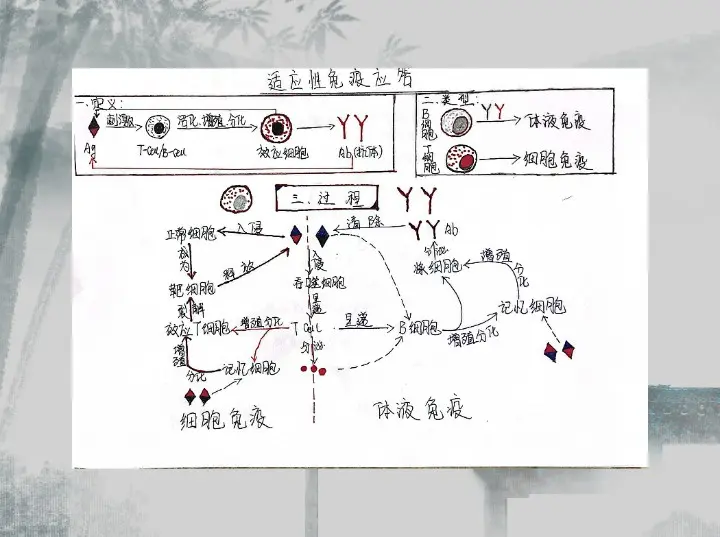 适应性免疫应答
一、定义:
刺激
活化、增殖、分化
Ag
T-Cell/B-Cell
效应细胞
Ab(抗体)
二、类型:
B细胞
体液免疫
T细胞
细胞免疫
三、过程
正常细胞
入侵
清除
Ab
成为
释放
入侵
分泌
靶细胞
吞噬细胞
浆细胞
增殖
分化
裂解
呈递
记忆细胞
效应T细胞
增殖分化
T Cell
呈递
B细胞
增殖分化
增殖
分化
记忆细胞
分泌
细胞免疫
体液免疫